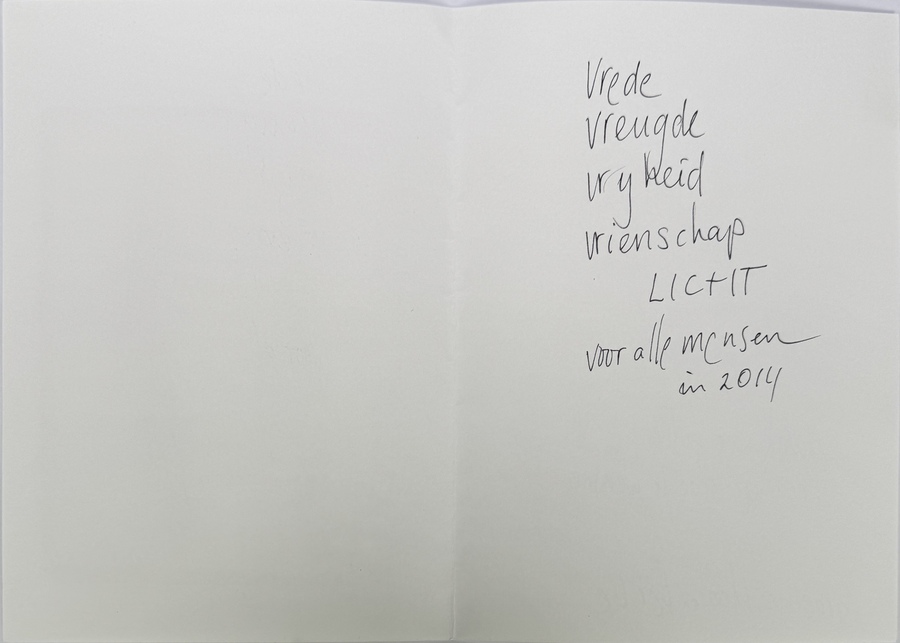 Vrede
vreugde
vryheid
vrienschap
LICHT
voor alle mensen
in 2014